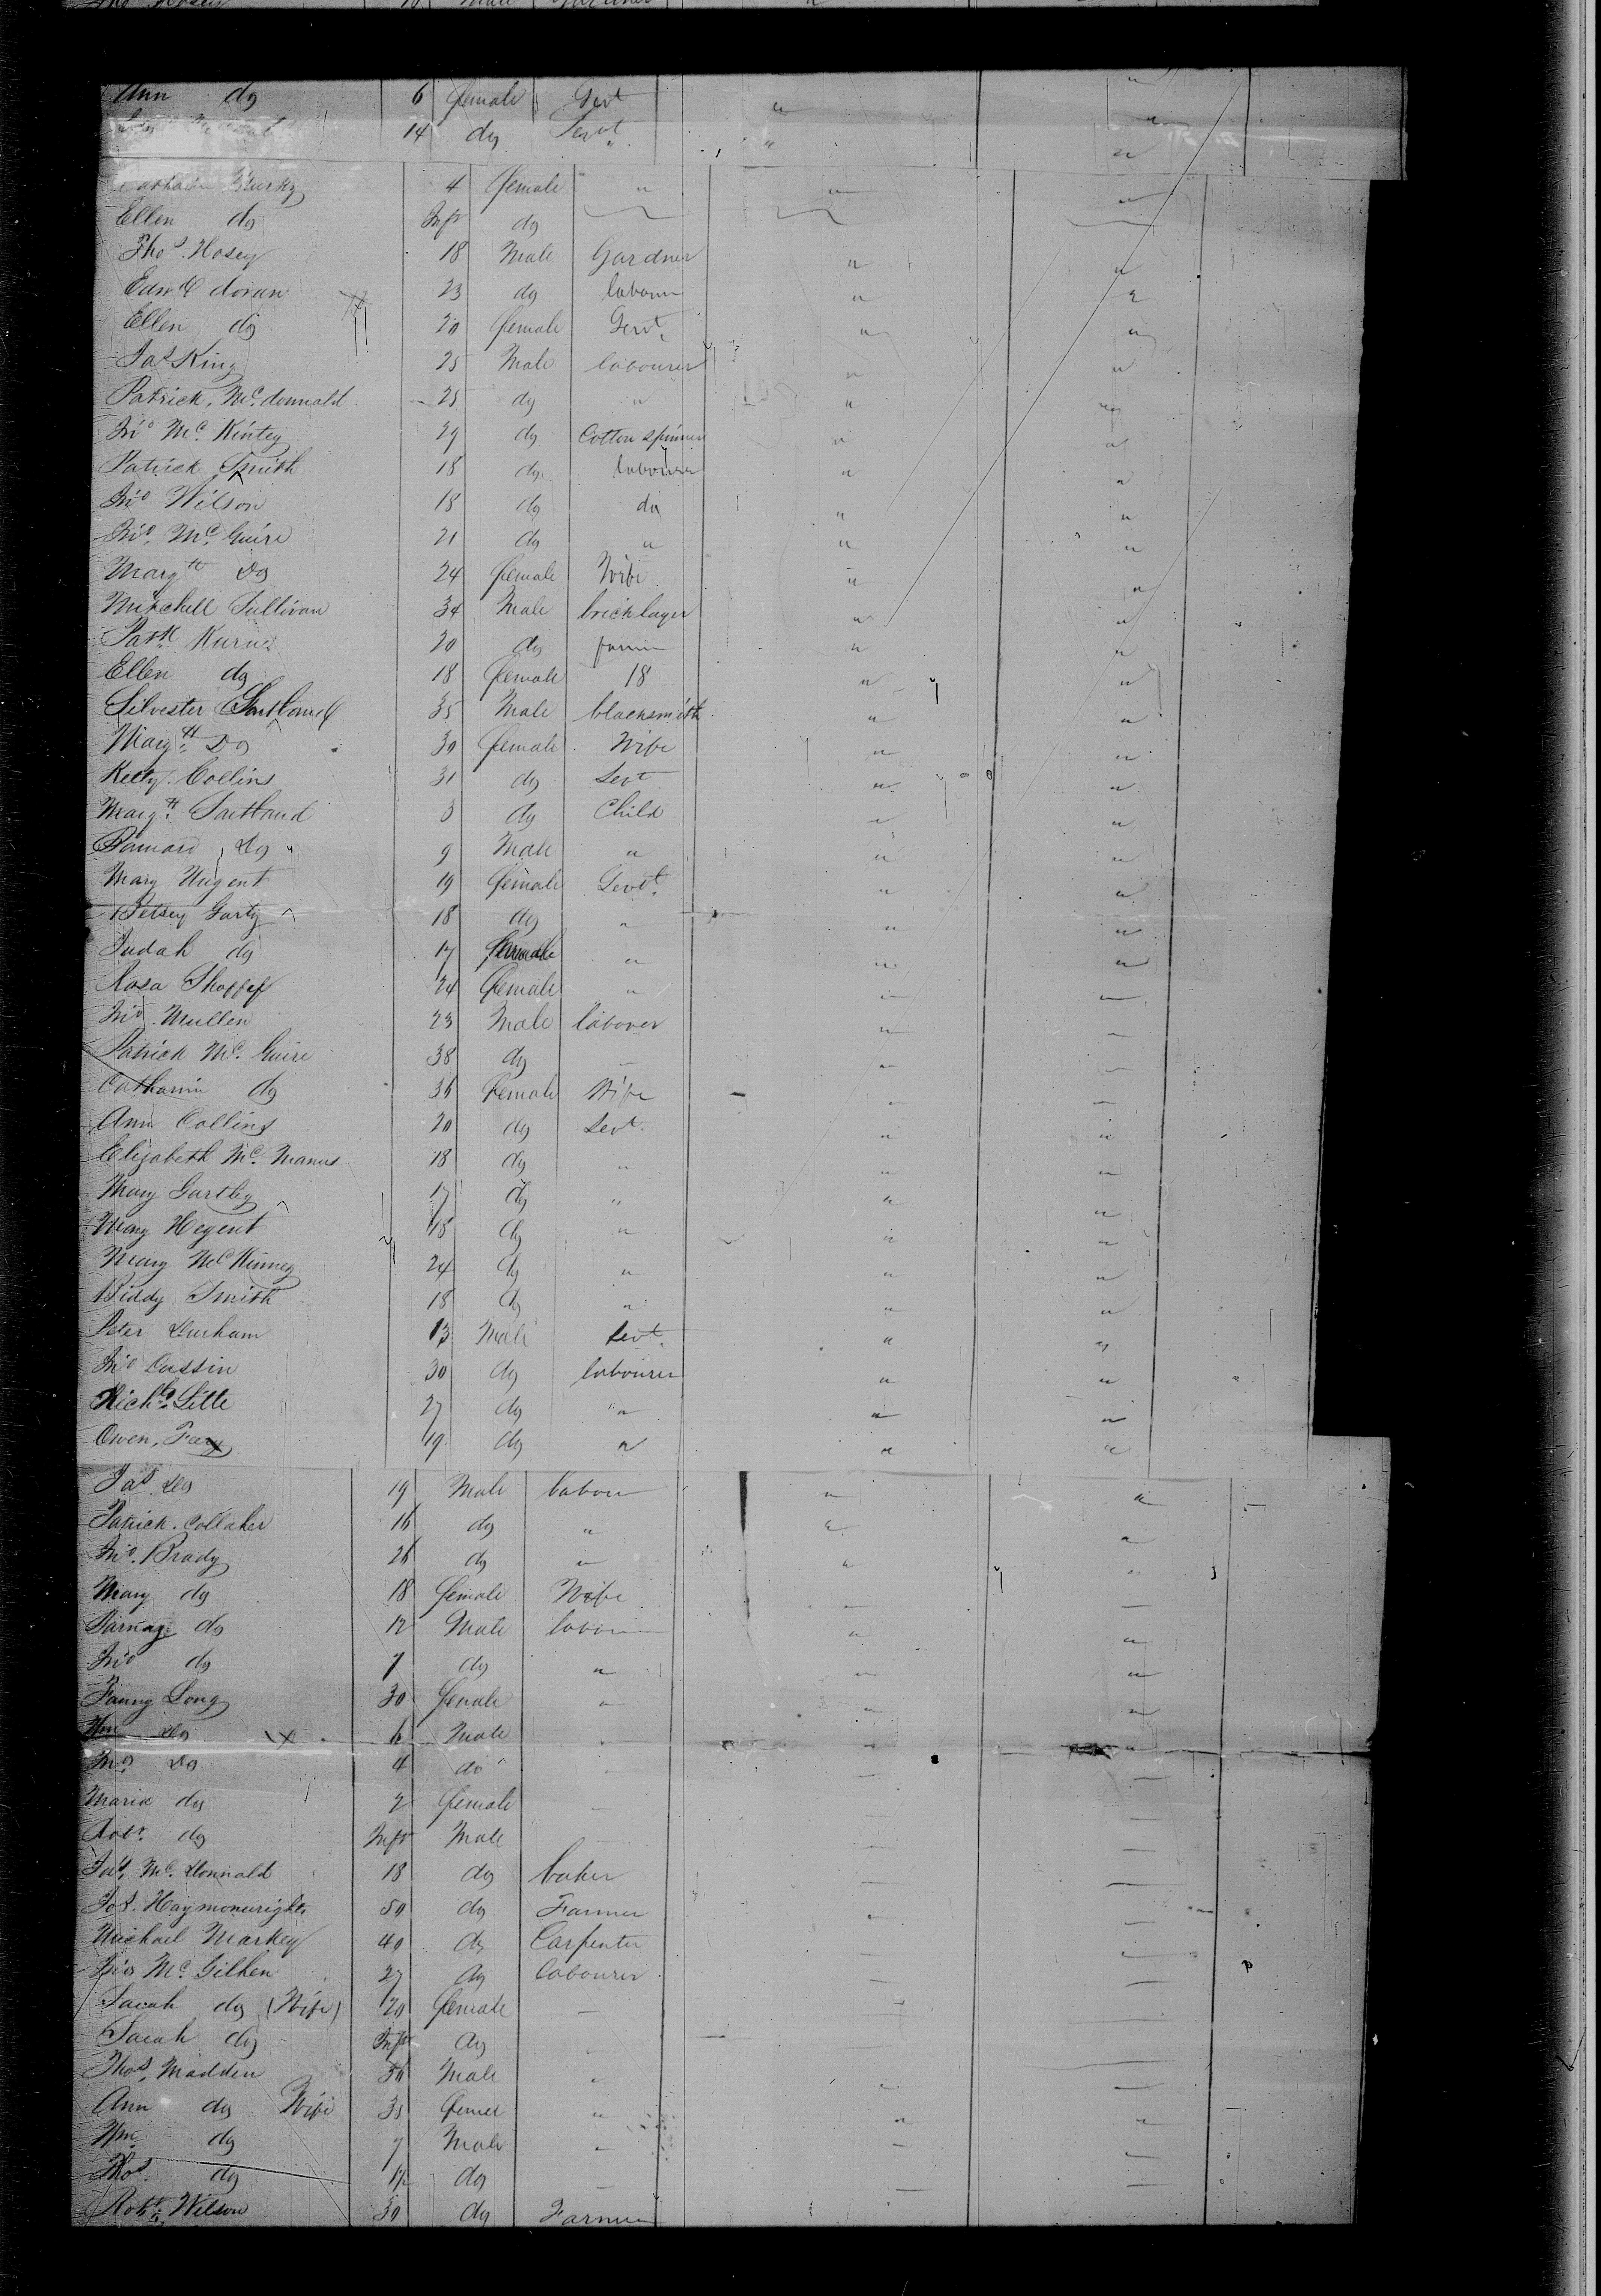 Ann do 6 female Servt "
14 do Servt "
4 female " "
Ellen do Inft do
Thos. Hosey 18 Male Gardner " "
Edwd doran 23 do labour " "
Ellen do 20 female Servt. " "
Jas King 25 Male labourer " "
Patrick, Mc.donnald 25 do " " "
Jno Mc. Kintey 29 do Cotton spinner " "
Patrick Smith 18 do labourer " "
Jno Wilson 18 do do " "
Jno. Mc. Guire 21 do " " "
Margtt Do 24 female Wife " "
Mitchell Sullivan 34 Male bricklayer " "
Patk 20 do " "
Ellen do 18 female 18 " "
Silvester 35 Male blacksmith " "
Margtt. Do 30 female Wife " "
Kelly Collins 31 do Sevt " "
Margtt. 3 do Child " "
do 9 Male " " "
Mary Nugent 19 female Sevt. " "
Betsey Garty 18 do " " "
Judah do 17 female " " "
Rosa 24 female " " "
Jno. Mullen 23 Male labourer "
Patrick Mc. Guire 38 do
Catharin do 36 female Wife
Ann Collins 20 do Sevt. " "
Elizabeth Mc. Manus 18 do " " "
Mary Gartley 17 do " " "
Mary Hegent 18 do " " "
Mary McKinney 24 do " " "
Biddy Smith 18 do " " "
Peter Durham 13 Male Sevt. " "
Jno Cassin 30 do labourer " "
Richd. Litle 27 do " " "
Owen, 19 do " " "
Jas. do 19 Male labour " "
Patrick. Collaher 16 do " " "
Jno. Brady 26 do " " "
Mary do 18 female Wife
do 12 Male labour " "
Jno do 7 do " " "
Fanny Long 30 female " " "
Wm do 6 Male " "
Jno do 4 do
Maria do 2 female
Robt. do Inft Male
Jas. Mc. Donnald 18 do baker
Jos. 50 do Farmer
Michael Markey 40 do Carpenter
Jno Mc. Gilken 27 do labourer
Sarah do (Wife) 20 female
Sarah do Inft do
Thos. Madden Male
Ann do Wife femel " "
Wm do 7 Male
Thos. do do
Robt. Wilson 30 do Farmer